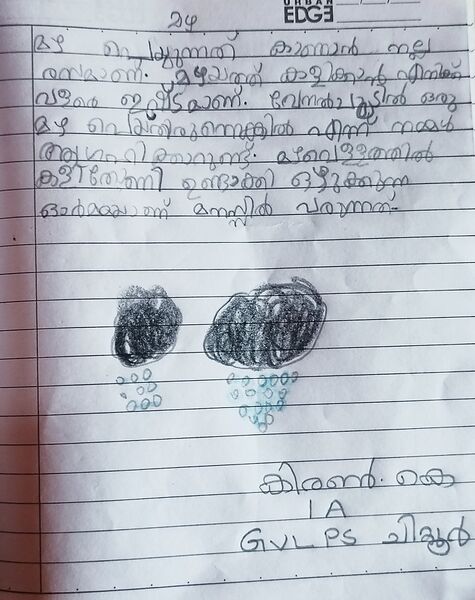 URBAN
EDGE
മഴ
മഴ പെയ്യുന്നത് കാണാൻ നല്ല
രസമാണ്. മഴയത്ത് കളിക്കാൻ എനിക്ക്
വളരെ ഇഷ്ടമാണ്. വേനൽ ചൂടിൽ ഒരു
മഴ പെയ്തിരുന്നെങ്കിൽ എന്ന് നമ്മൾ
ആഗ്രഹിക്കാറുണ്ട്. മഴവെള്ളത്തിൽ
കളിത്തോണി ഉണ്ടാക്കി ഒഴുക്കുന്ന
ഓർമ്മയാണ് മനസ്സിൽ വരുന്നത്.
കിരൺ. കെ
1 A
GVLPS ചിറ്റൂർ